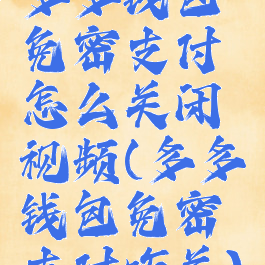 多多钱包
免密支付
怎么关闭
视频(多多
钱包免密
支付吃美)